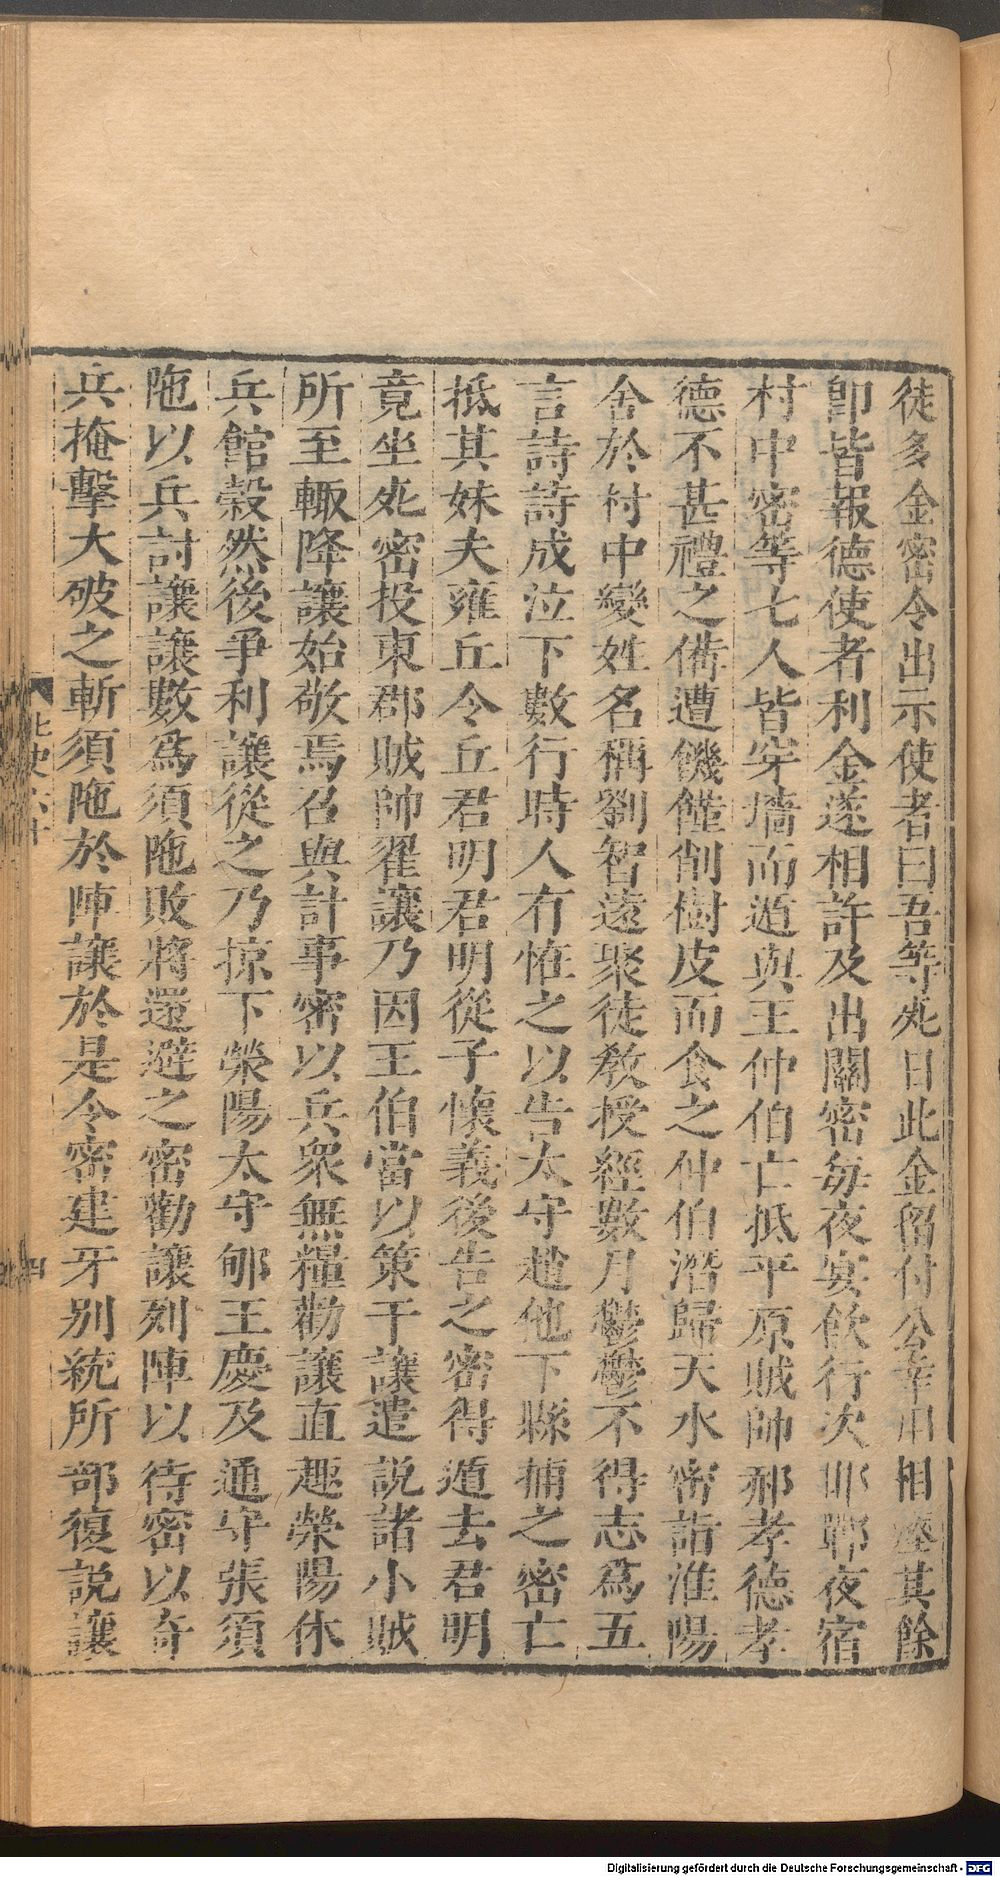 徒多金密令出示使者曰吾等死日此金留付公幸用相瘞其餘
卽皆報德使者利金遂相許及出關密每夜宴飲行次邯鄲夜宿
村中密等七人皆穿墻而遁與王仲伯亡抵平原賊帥郝孝德孝
德不甚禮之備遭饑饉削樹皮而食之仲伯潛歸天水密詣淮陽
舍於村中變姓名稱劉智遠聚徒敎授經數月鬱鬱不得志爲五
言詩詩成泣下數行時人有恠之以告太守趙他下縣捕之密亡
抵其妹夫雍丘令丘君明君明從子懷義後告之密得遁去君明
竟坐死密投東郡賊帥翟讓乃因王伯當以策干讓遣說諸小賊
所至輙降讓始敬焉召與計事密以兵衆無糧勸讓直趣滎陽休
兵館穀然後爭利讓從之乃掠下滎陽太守郇王慶及通守張須
陁以兵討讓讓數爲須陁敗將還避之密勸讓列陣以待密以奇
兵掩擊大破之斬須陁於陣讓於是令密建牙別統所部復說讓
北史六十
四
Digitalisierung gefördert durch die Deutsche Forschungsgemeinschaft - DFG